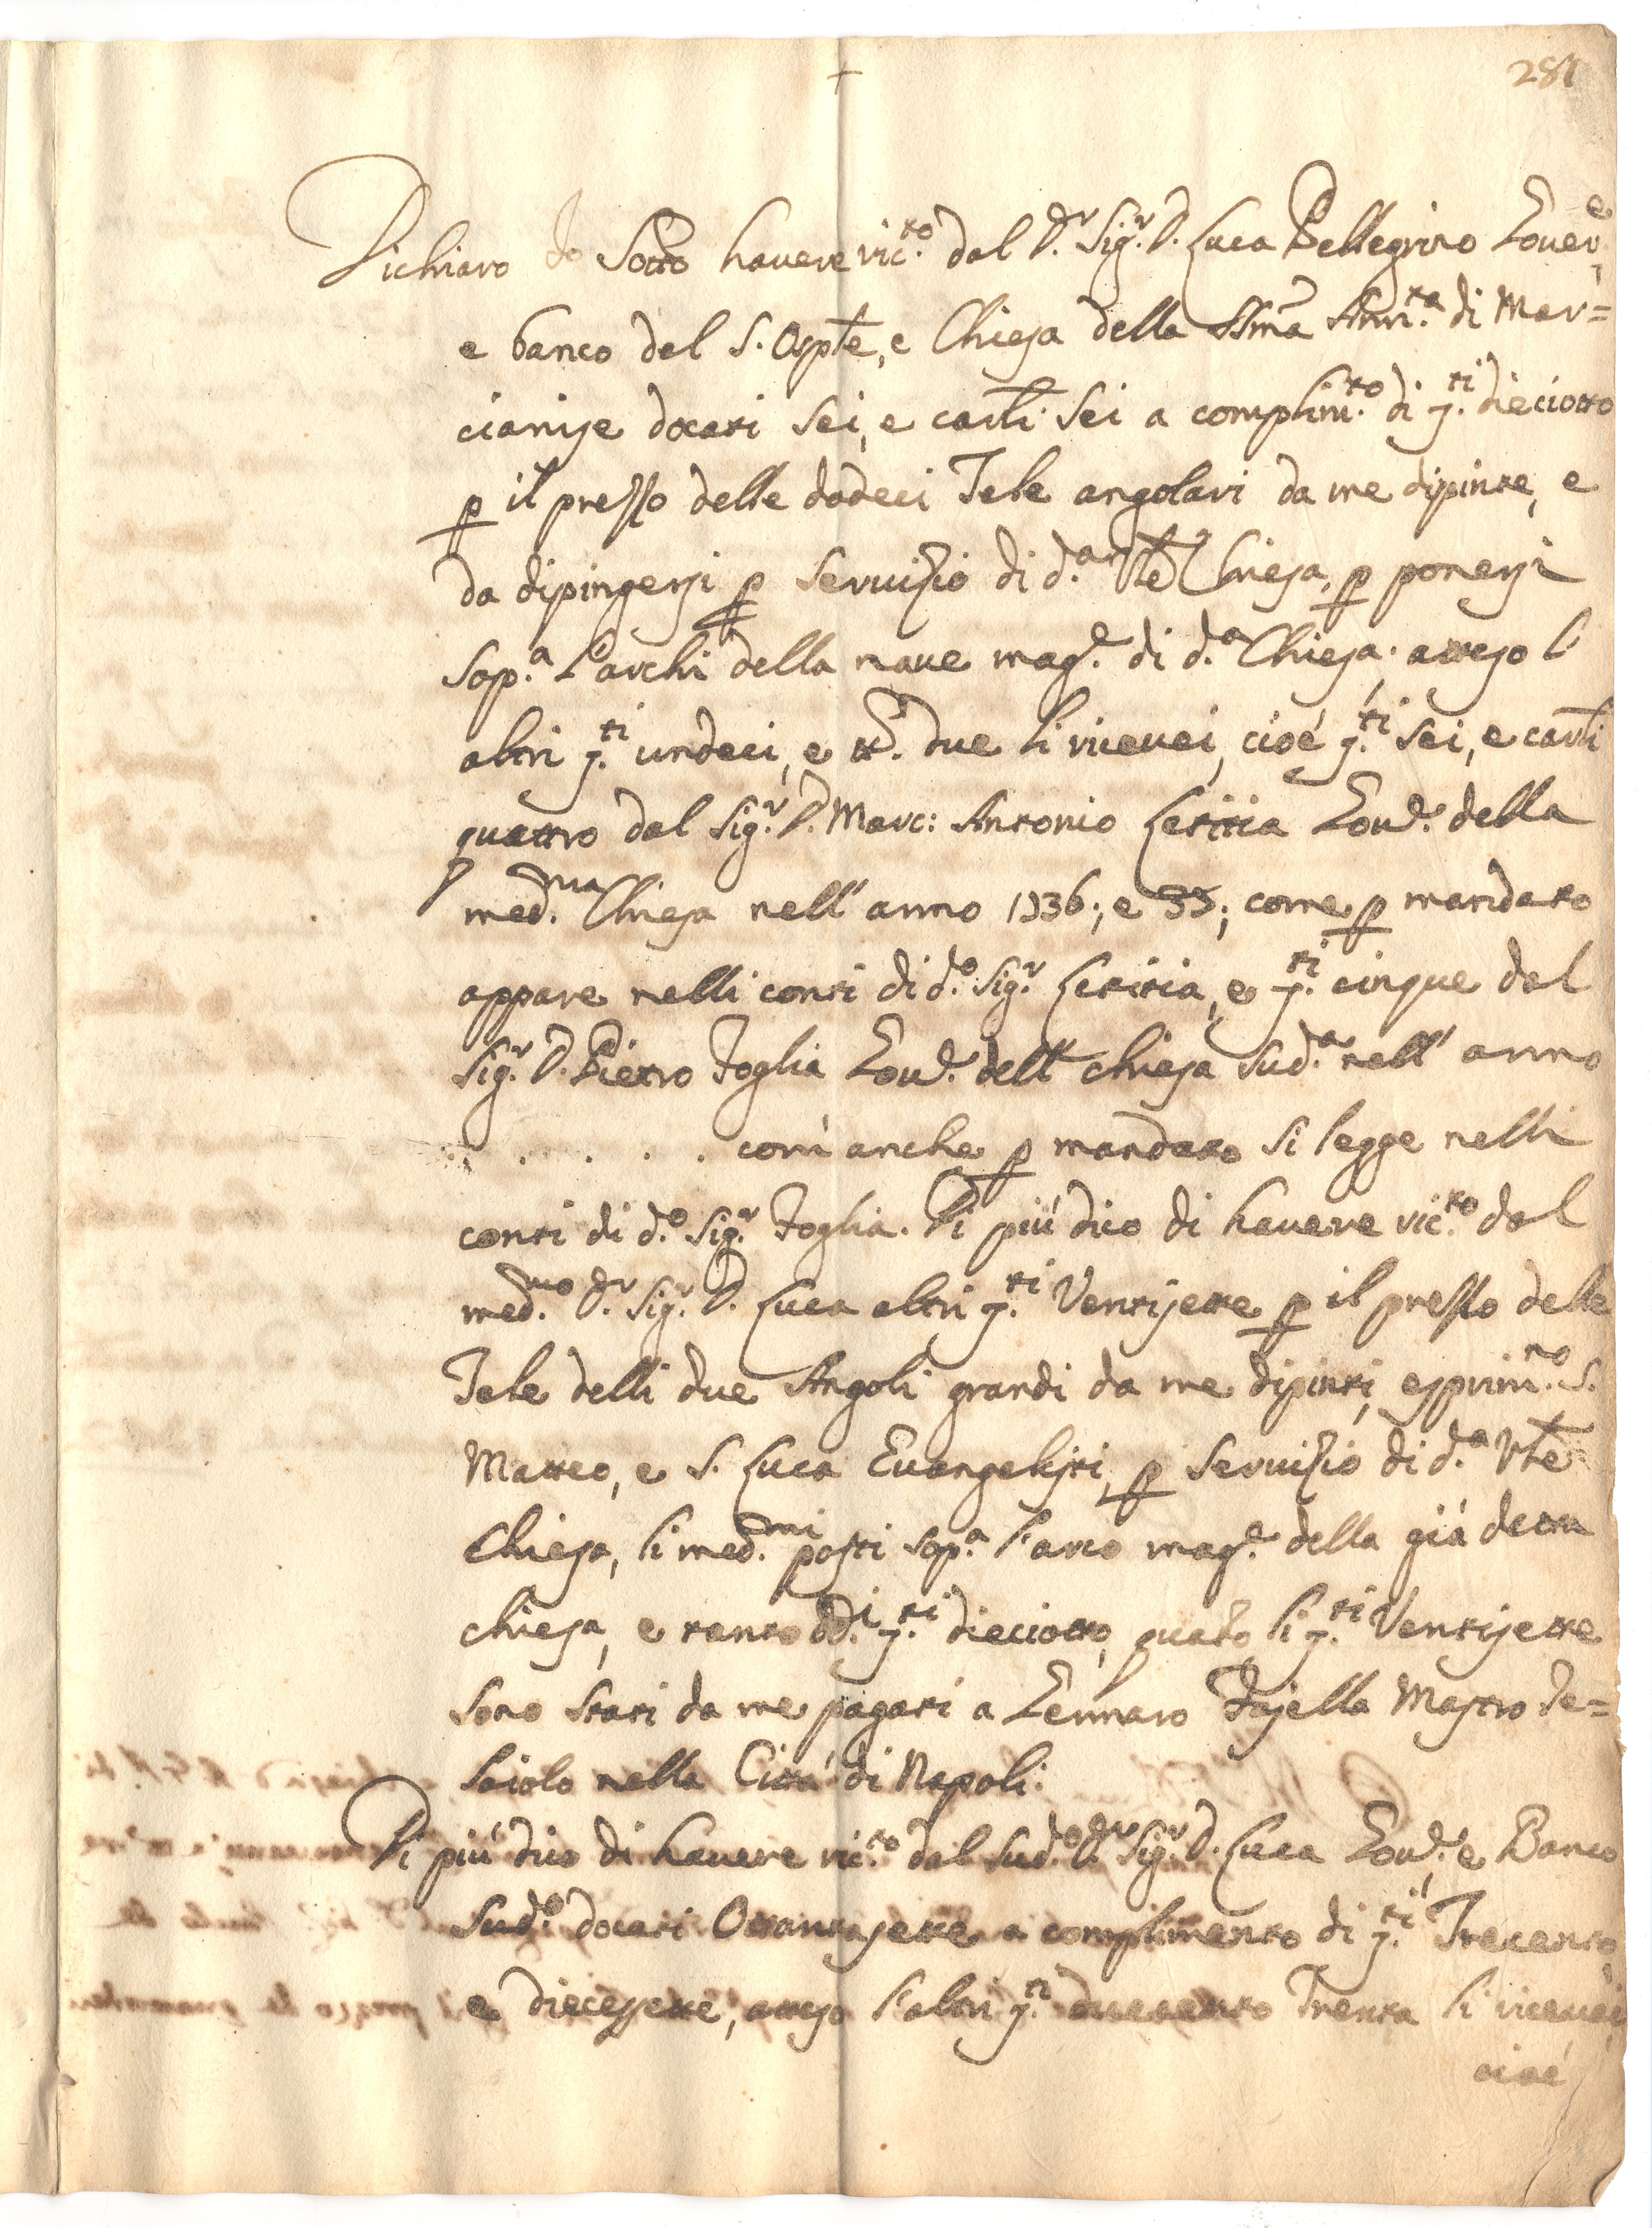 287
+
Dichiaro Io Sotto havere ric.to dal D.r Sig.r D. Luca Pellegrino Gover.e
e banco del S. Ospte, e Chiesa della SSma Ann.ta di Mar=
cianise docati sei, e carli sei a complim.to di q.ti dieciotto
p il presso delle dodeci Tele angolari da me dipinte, e
da dipingersi p servizio di d.a Vle Chiesa, p ponersi
sop.a l'archi della nave mag.e di d.a Chiesa; atteso l'
altri q.ti undeci, e tt. due li ricevei, cioé q.ti sei, e carli
quattro dal Sig.r D. Marc: Antonio Letitia Gov.e della
med.ma Chiesa nell'anno 1736; e 37; come p mandato
appare nelli conti di d.o Sig.r Letitia, e q.ti cinque dal
Sig.r D. Pietro Foglia Gov.e dell' chiesa sud.a nell'anno
. . . . . com'anche p mandato si legge nelli
conti di d.o Sig.r Foglia. Di più dico di havere ric.to dal
med.mo D.r Sig.r D. Luca altri q.ti Ventisette p il presso delle
Tele delli due Angoli grandi da me dipinti, esprim.no S.
Matteo, e S. Luca Evangelisti, p servizio di d.a Vle
Chiesa, li med.mi posti sop.a l'arco mag.e della già detta
chiesa, e tanto dd.i q.ti dieciotto, quato li q.ti Ventisette
sono stati da me pagati a Gennaro Fasella Mastro Te=
laiolo nella Città di Napoli:
Di più dico di havere ric.to dal sud.o D.r Sig.r D. Luca Gov.e e Banco
sud.o docati Ottantasette a complimento di q.ti Trecento,
e diecessette, atteso l'altri q.ti duecento Trenta li ricevei,
cioé